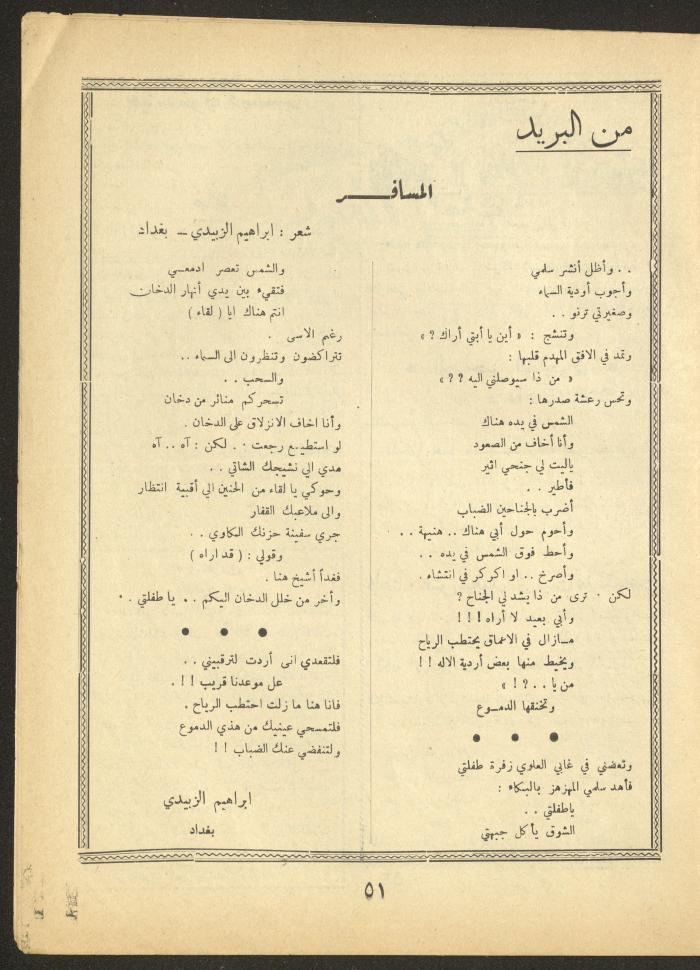 من البريد
المسافـــــر
شعر : ابراهيم الزبيدي ــ بغداد
. . وأظل أنشر سلمي
وأجوب أودية السماء
وصغيرتي ترنو . .
وتنشج : « أين يا أبتي أراك ? »
وتمد في الافق المهدم قلبها :
« من ذا سيوصلني اليه ? ? »
وتحس رعشة صدرها :
الشمس في يده هناك
وأنا أخاف من الصعود
ياليت لي جنحي اثير
فأطير . .
أضرب بالجناحين الضباب
وأحوم حول أبي هناك .. هنيهة . .
وأحط فوق الشمس في يده . .
وأصرخ . . او اكركر في انتشاء .
لكن . ترى من ذا يشد لي الجناح ?
وأبي بعيد لا أراه ! ! !
مـازال في الاعماق يحتطب الرياح
ويخيط منها بعض أردية الاله ! !
من يا . . ? ! »
وتخنقها الدمــوع
● ● ●
وتعضني في غابي العلوي زفرة طفلتي
فأهد سلمي المهزهز بالبكاء :
ياطفلتي . .
الشوق يأكل جبهتي
والشمس تعصر ادمعـي
فتقيء بين يدي أنهار الدخان
انتم هناك ايا ( لقاء )
رغم الاسى .
تتراكضون وتنظرون الى السماء ..
والسحب . .
تسحركم منائر من دخان
وأنا اخاف الانزلاق على الدخان .
لو استطيع رجعت . . لكن : آه .. آه
مدي الي نشيجك الشاتي . .
وحوكي يا لقاء من الحنين الي أقبية انتظار
والى ملاعبك القفار
جري سفينة حزنك المكاوي . .
وقولي : ( قد اراه )
فغداً أشيخ هنا .
وأخر من خلل الدخان اليكم . . يا طفلتي . .
● ● ●
فلتقعدي انى أردت لترقبيني . .
عل موعدنا قريب ! ! .
فانا هنا ما زلت احتطب الرياح .
فلتمسحي عينيك من هذي الدموع
ولتنفضي عنك الضباب ! !
ابراهيم الزبيدي
بغداد
٥١